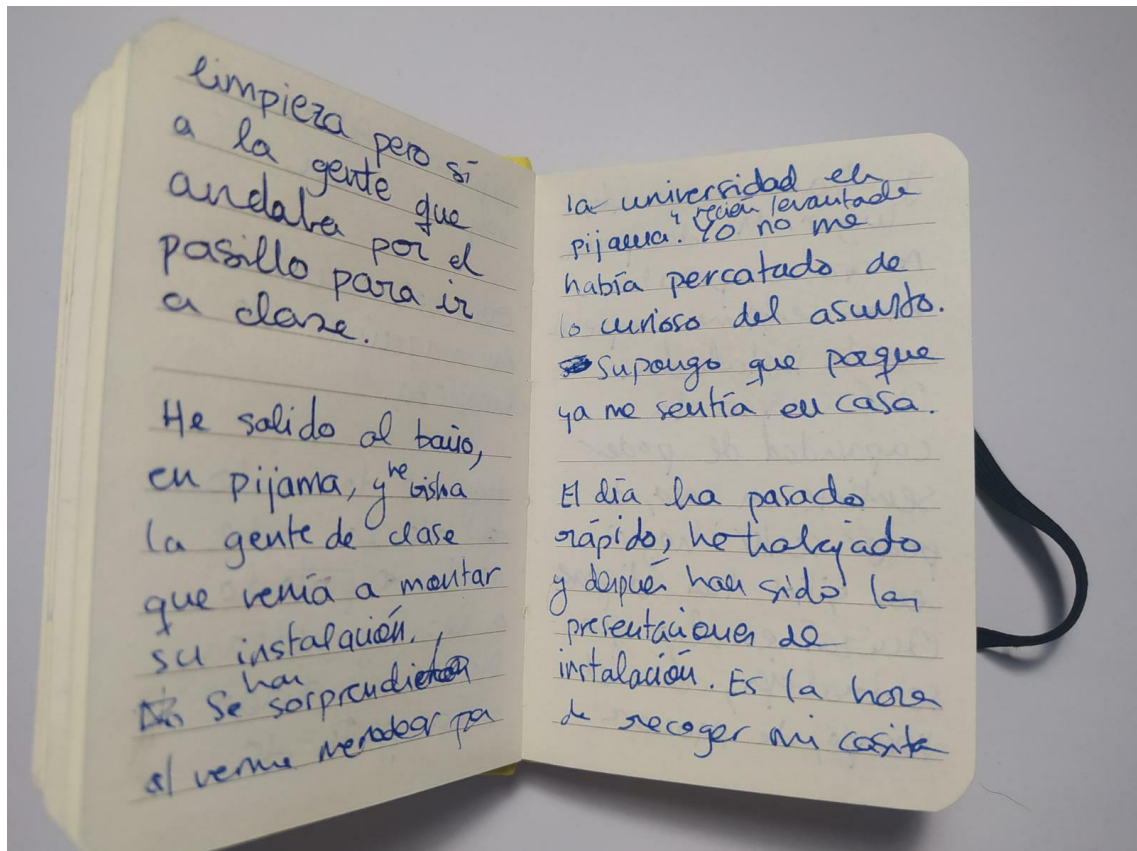 limpieza pero sí
a la gente que
andaba por el
pasillo para ir
a clase.
He salido al baño,
en pijama, y he visto a
la gente de clase
que venía a montar
su instalación.
Se han
sorprendido
al verme merodear por
la universidad en
pijama. y recién levantada
Yo no me
había percatado de
lo curioso del asunto.
Supongo que porque
ya me sentía en casa.
El día ha pasado
rápido, he trabajado
y después han sido las
presentaciones de
instalación. Es la hora
de recoger mi casita